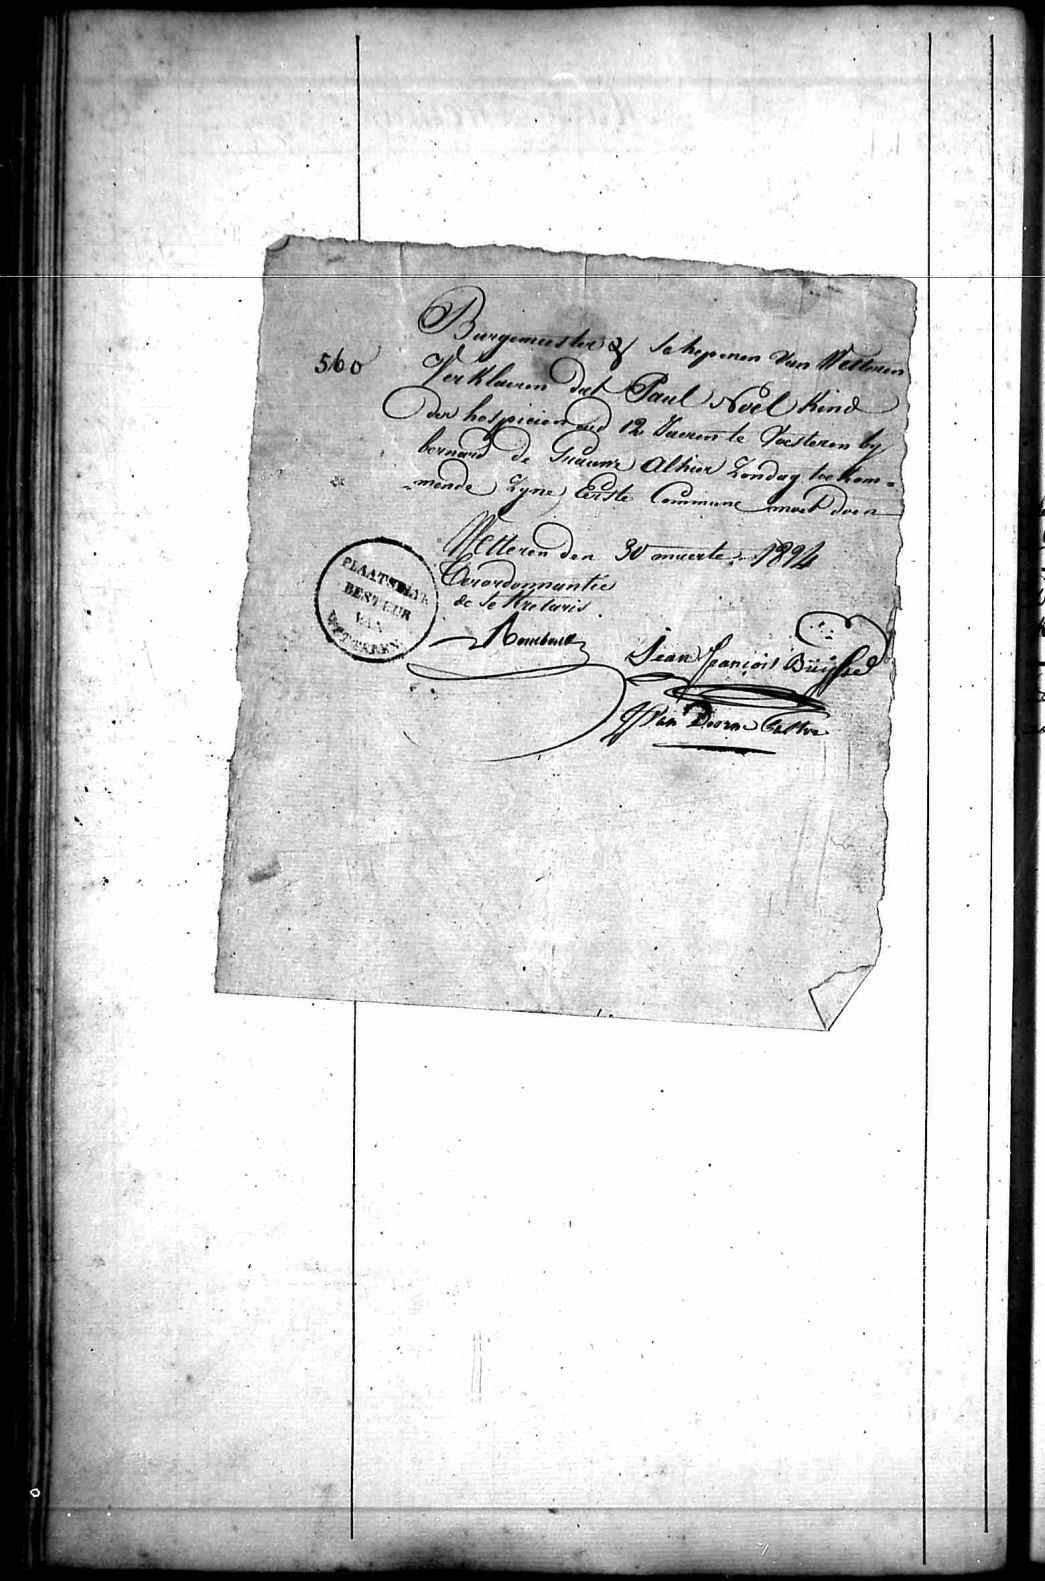 560
Burgemeester & Schepenen Van Wetteren
Verklaeren dat Paul Noël Kind
der hospicien oud 12 Jaeren te Voesteren by
bernard de Grauwe Alhier Zondag toekom=
=mende Zyne Eerste Commune moet doen
Wetteren den 30 maerte 1824
Ter ordonnantie
de Sekretaris
PLAATSELYK
BESTUUR
VAN
WETTEREN
Jean françois Buÿsse
JJ Van Doorne